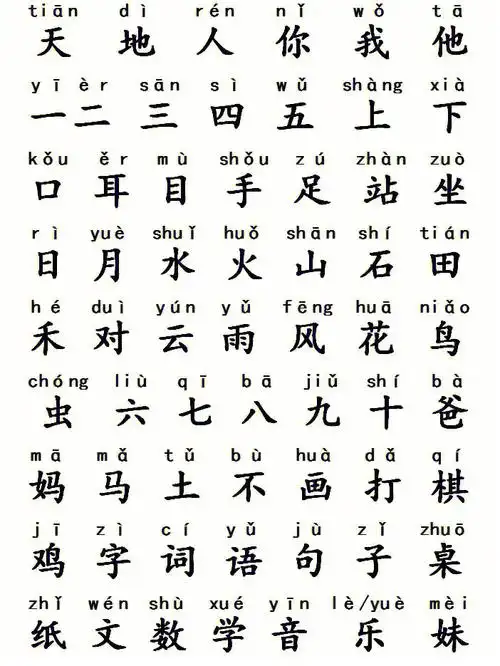 tiān dì rén nǐ wǒ tā
天 地 人 你 我 他
yī èr sān sì wǔ shàng xià
一 二 三 四 五 上 下
kǒu ěr mù shǒu zú zhàn zuò
口 耳 目 手 足 站 坐
rì yuè shuǐ huǒ shān shí tián
日 月 水 火 山 石 田
hé duì yún yǔ fēng huā niǎo
禾 对 云 雨 风 花 鸟
chóng liù qī bā jiǔ shí bà
虫 六 七 八 九 十 爸
mā mǎ tǔ bù huà dǎ qí
妈 马 土 不 画 打 棋
jī zì cí yǔ jù zǐ zhuō
鸡 字 词 语 句 子 桌
zhǐ wén shù xué yīn lè/yuè mèi
纸 文 数 学 音 乐 妹